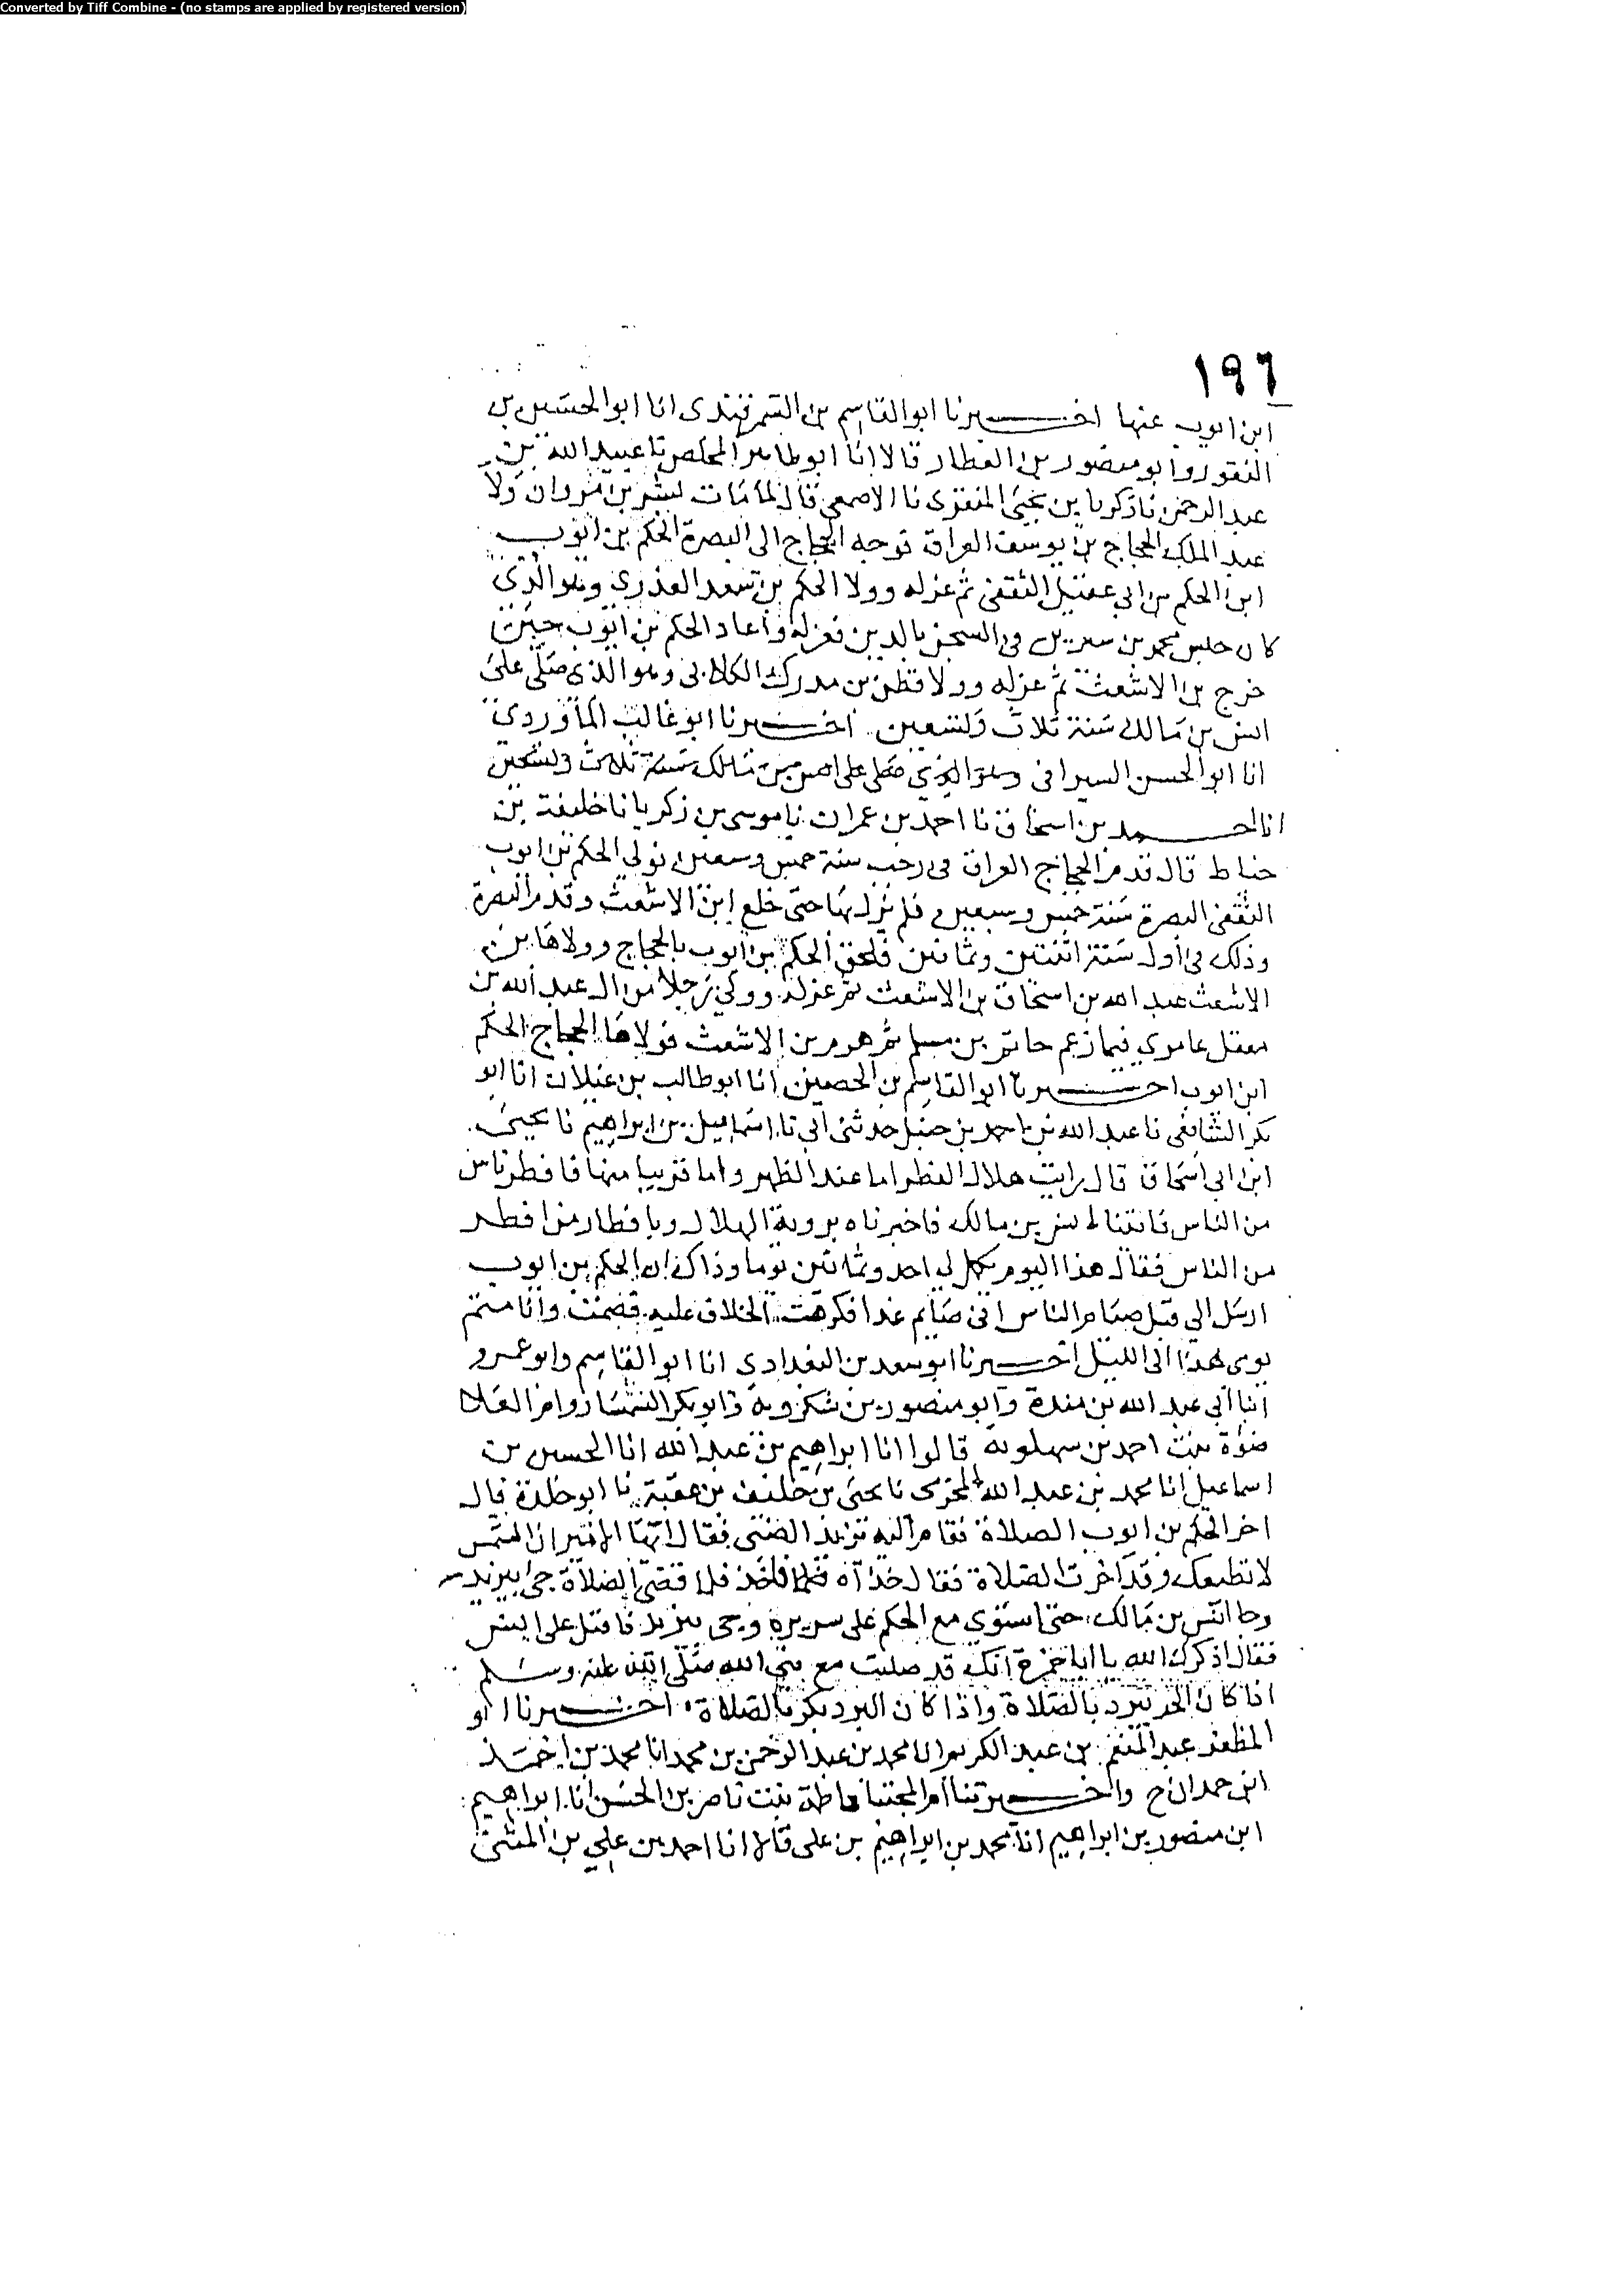 Converted by Tiff Combine - (no stamps are applied by registered version)
١٩٦
ابن ايوب عنها اخبرنا ابو القاسم بن السمرقندى انا ابو الحسين بن
النقور وابو منصور بن العطار قالا انا ابو طاهر المخلص نا عبيد الله بن
عبد الرحمن نا زكريا بن يحيى المنقرى نا الاصمعى قال لما مات بشر بن مروان ولا
عبد الملك الحجاج بن يوسف العراق توجه الحجاج الى البصرة الحكم بن ايوب
ابن الحكم بن ابي عقيل الثقفى ثم عزله وولا الحكم بن سعد العذري وهو الذي
كان حبس محمد بن سيرين فى السجن بالدين فعزله واعاد الحكم بن ايوب حين
خرج بن الاشعث ثم عزله وولا قطن بن مدرك الكلابى وهو الذى صلى على
انس بن مالك سنة ثلاث وتسعين اخبرنا ابو غالب الماوردي
انا ابو الحسن السيرافى وهو الذي صلى على انس بن مالك سنة ثلاث وتسعين
انا احمد بن اسحاق نا احمد بن عمران نا موسى بن زكريا نا خليفة بن
خياط قال قدم الحجاج العراق فى رجب سنة خمس وسبعين فولى الحكم بن ايوب
الثقفى البصرة سنة خمس وسبعين فلم يزل بها حتى خلع ابن الاشعث وقدم البصرة
وذلك فى اول سنة اثنتين وثمانين فلحق الحكم بن ايوب بالحجاج وولاها بن
الاشعث عبد الله بن اسحاق بن الاشعث ثم عزله وولى رجلا من ال عبد الله بن
معقل عامري فيما زعم حاتم بن مسلم ثم هزم بن الاشعث فولاها الحجاج الحكم
ابن ايوب اخبرنا ابو القاسم بن الحصين انا ابو طالب بن غيلان انا ابو
بكر الشافعى نا عبد الله بن احمد بن حنبل حدثنى ابى نا اسماعيل بن ابراهيم نا يحيى
ابن ابى اسحاق قال رايت هلال الفطر اما عند الظهر واما قريبا منها فافطر ناس
من الناس فاتينا انس بن مالك فاخبرناه بروية الهلال وبافطار من افطر
من الناس فقال هذا اليوم يكمل لى احد وثمانين يوما وذاك ان الحكم بن ايوب
ارسل الى قبل صيام الناس انى صايم غدا فكرهت الخلاف عليه فصمت وانا متم
يومى هذا الى الليل اخبرنا ابو سعد بن البغدادي انا ابو القاسم وابو عمرو
ابنا ابى عبد الله بن مندة وابو منصور بن شكرويه وابو بكر السمسار وام العلا
ضوة بنت احمد بن سهلويه قالوا انا ابراهيم بن عبد الله انا الحسين بن
اسماعيل نا محمد بن عبد الله المخرمى نا يحيى بن خليف بن عقبة نا ابو خلدة قال
اخر الحكم بن ايوب الصلاة فقام اليه يزيد الضبى فقال ايها الامير ان الشمس
لا تطيعك وقد اخرت الصلاة فقال خذاه فاخذ فلما قضى الصلاة جى بيزيد
وجا انس بن مالك حتى استوي مع الحكم على سريره وجى بيزيد فاقبل على انس
فقال اذكرك الله يا ابا حمزة انك قد صليت مع نبي الله صلى الله عليه وسلم
اذا كان الحر تبرد بالصلاة واذا كان البرد بكر بالصلاة اخبرنا ابو
المظفر عبد المنعم بن عبد الكريم انا محمد بن عبد الرحمن بن محمد انا محمد بن احمد
ابن حمدان ح واخبرتنا ام المجتبا فاطمة بنت ناصر بن الحسن انا ابراهيم
ابن منصور بن ابراهيم انا محمد بن ابراهيم بن على قالا انا احمد بن علي بن المثنى